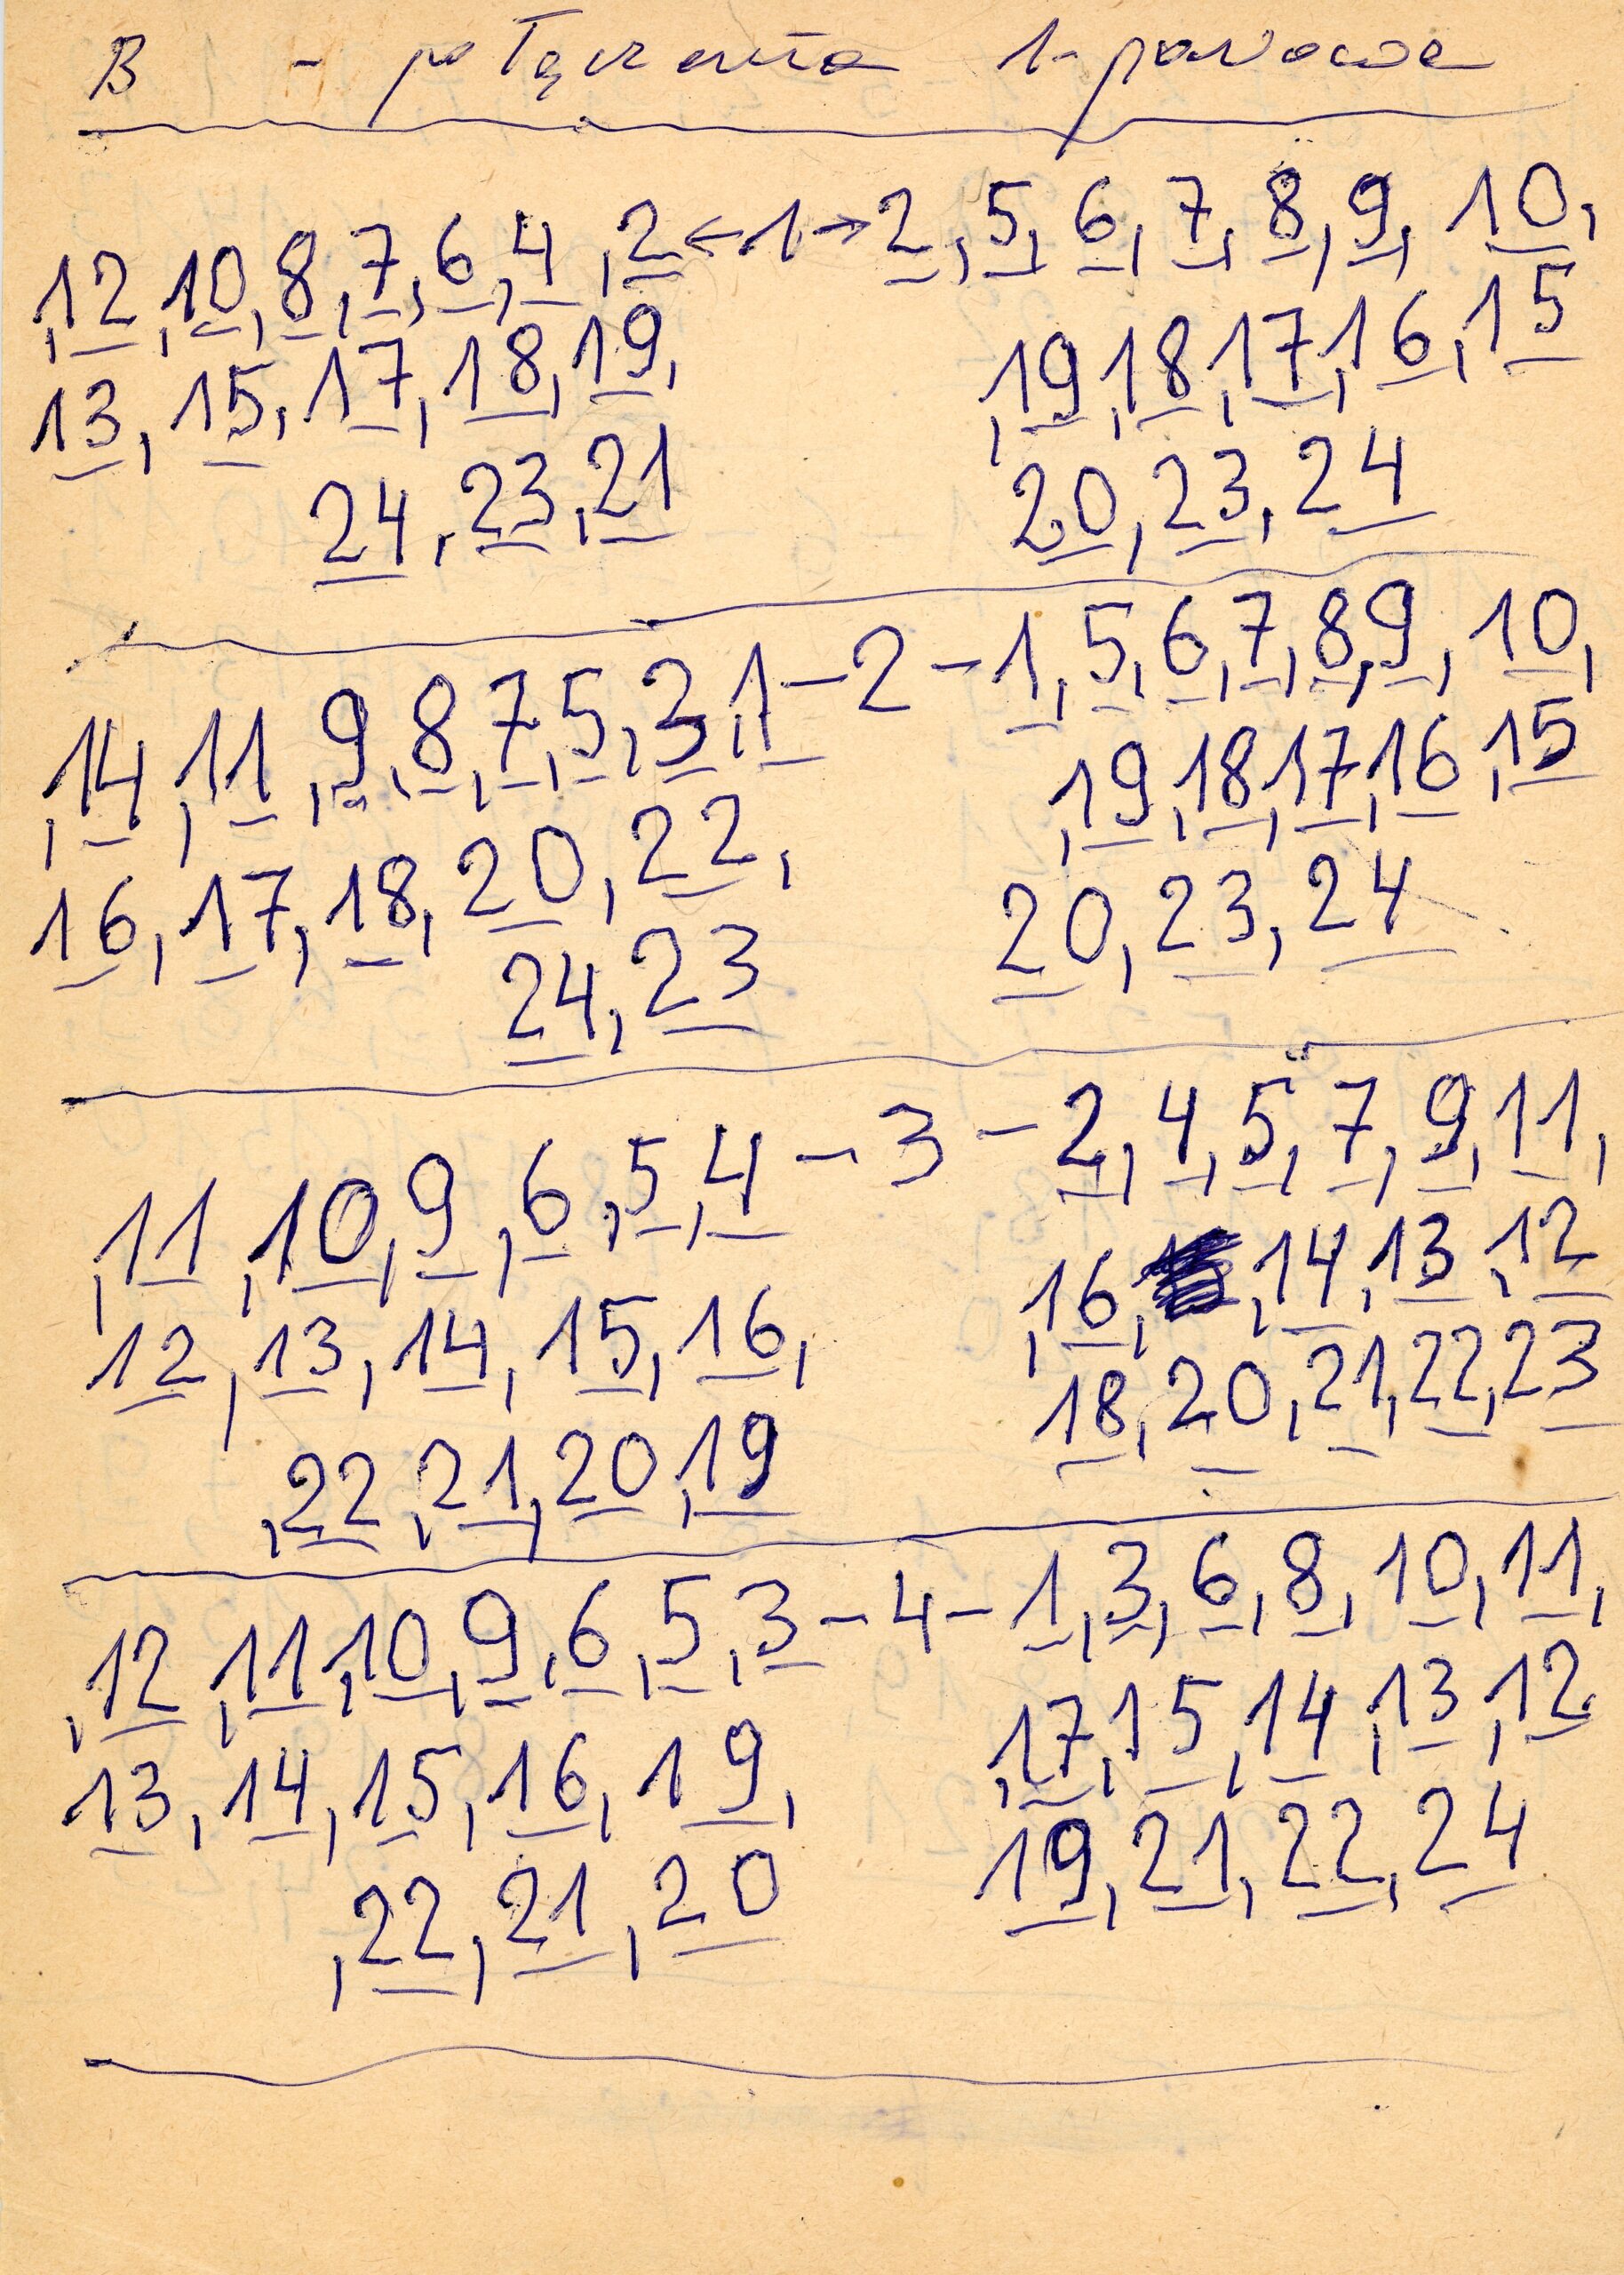 B - połączenia 1-pionowe
,12,10,8,7,6,4,2←1→2,5,6,7,8,9,10,
13,15,17,18,19, ,19,18,17,16,15
24,23,21 20,23,24
,14,11,9,8,7,5,3,1-2-1,5,6,7,8,9,10,
16,17,18,20,22, ,19,18,17,16,15
24,23 20,23,24
,11,10,9,6,5,4-3-2,4,5,7,9,11,
12,13,14,15,16, ,16,14,13,12
,22,21,20,19 18,20,21,22,23
,12,11,10,9,6,5,3-4-1,3,6,8,10,11,
13,14,15,16,19, ,17,15,14,13,12
,22,21,20 19,21,22,24